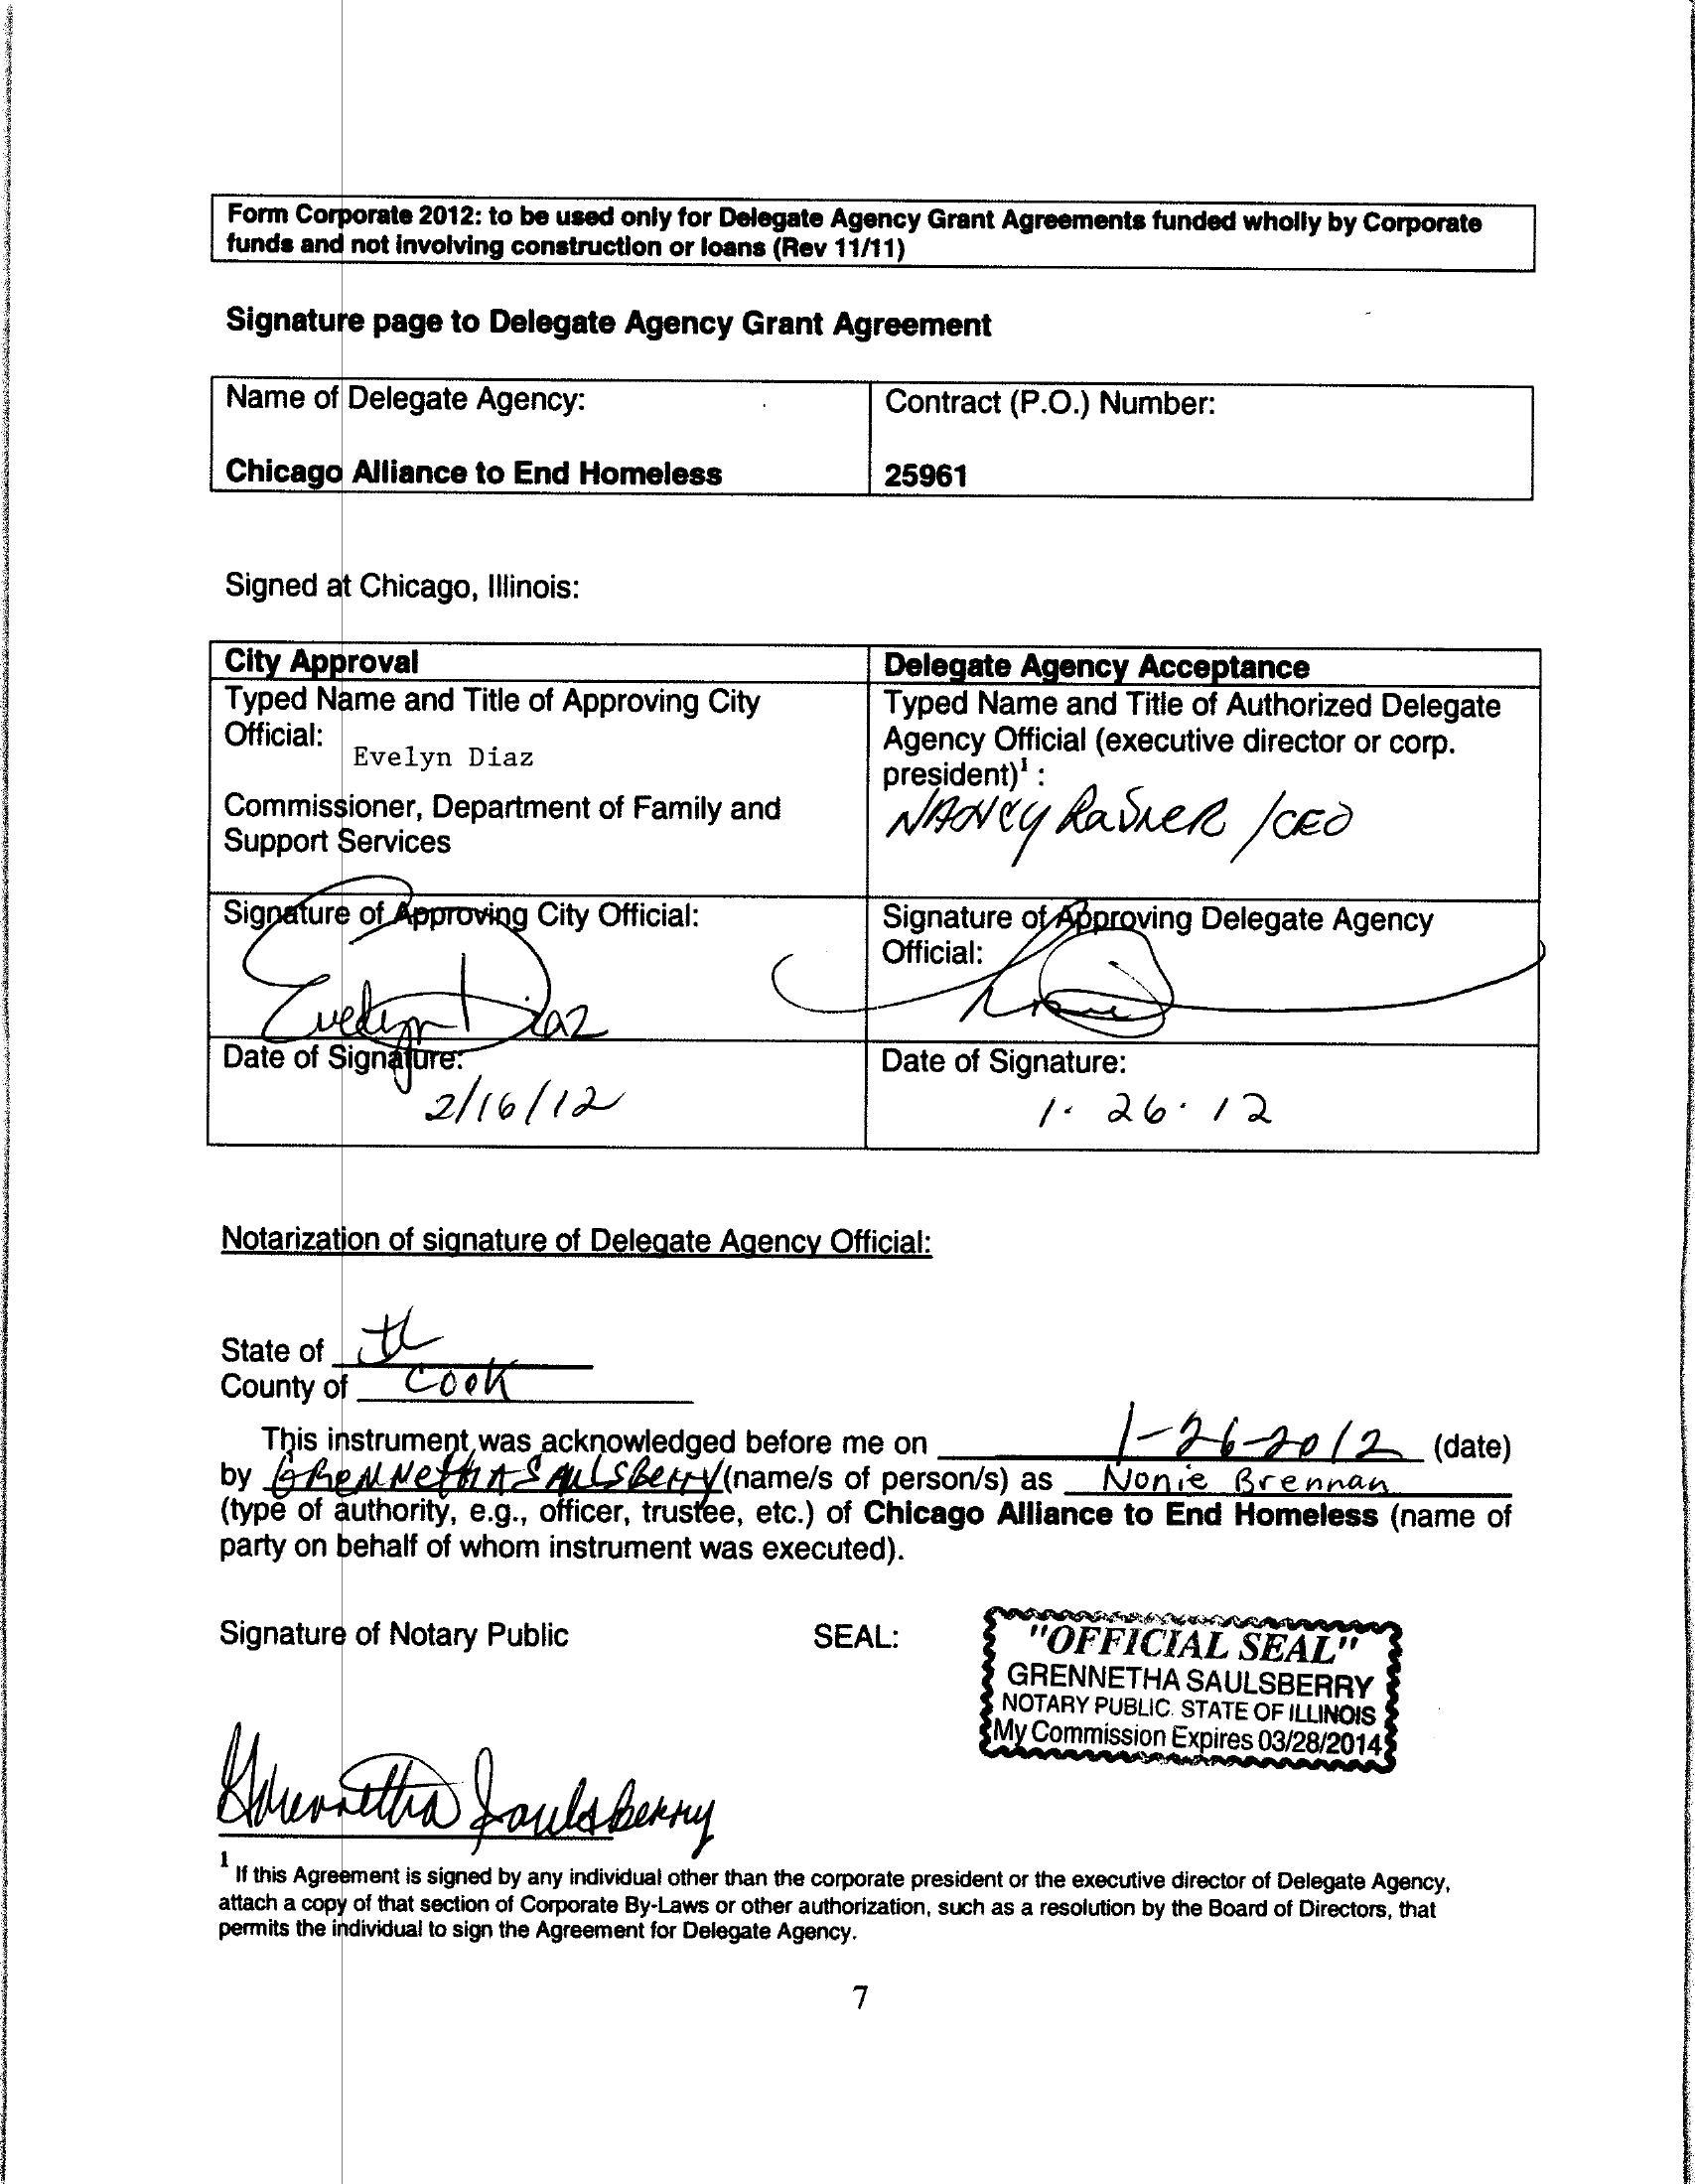 Form Corporate 2012: to be used only for Delegate Agency Grant Agreements funded wholly by Corporate
funds and not involving construction or loans (Rev 11/11)
Signature page to Delegate Agency Grant Agreement
Name of Delegate Agency:
Chicago Alliance to End Homeless
Contract (P.O.) Number:
25961
Signed at Chicago, Illinois:
City Approval
Typed Name and Title of Approving City
Official:
Evelyn Diaz
Commissioner, Department of Family and
Support Services
Delegate Agency Acceptance
Typed Name and Title of Authorized Delegate
Agency Official (executive director or corp.
president)¹ :
NANCY /CEO
Signature of Approving City Official:
Evelyn Diaz
Signature of Approving Delegate Agency
Official:
Date of Signature:
2/16/12
Date of Signature:
1·26·12
Notarization of signature of Delegate Agency Official:
State of IL
County of Cook
This instrument was acknowledged before me on 1-26-2012 (date)
by GRENNETHA SAULSBERRY (name/s of person/s) as Nonie Brennan
(type of authority, e.g., officer, trustee, etc.) of Chicago Alliance to End Homeless (name of
party on behalf of whom instrument was executed).
Signature of Notary Public
SEAL:
"OFFICIAL SEAL"
GRENNETHA SAULSBERRY
NOTARY PUBLIC. STATE OF ILLINOIS
My Commission Expires 03/28/2014
Grennetha Saulsberry
¹ If this Agreement is signed by any individual other than the corporate president or the executive director of Delegate Agency,
attach a copy of that section of Corporate By-Laws or other authorization, such as a resolution by the Board of Directors, that
permits the individual to sign the Agreement for Delegate Agency.
7